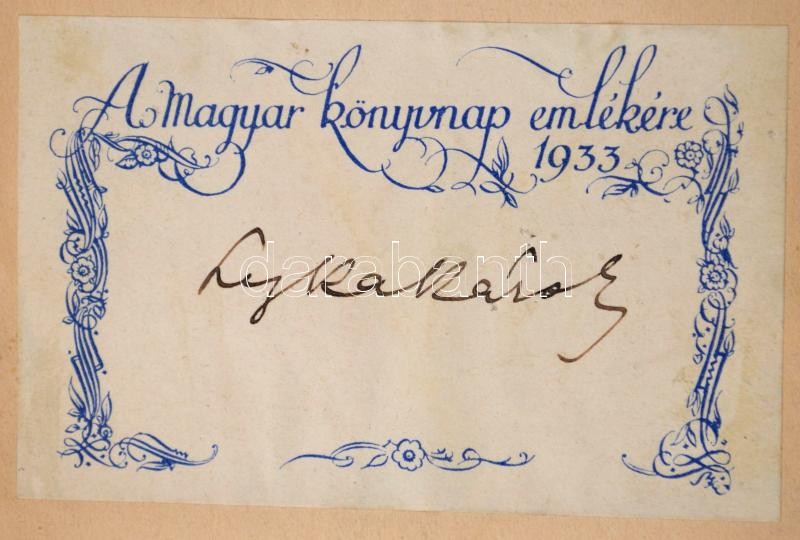 A Magyar könyvnap emlékére
1933
Lyka Károly
darabanth